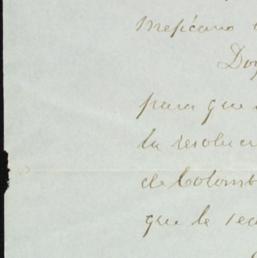 Mejicano
Doy
para que
la resoluci
de Colomb
que le rec